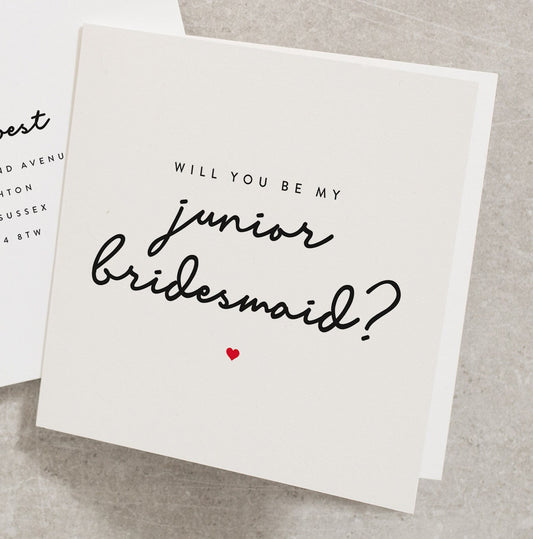 WILL YOU BE MY
junior
bridesmaid?
AVENU
SUSSEX
4 8TW